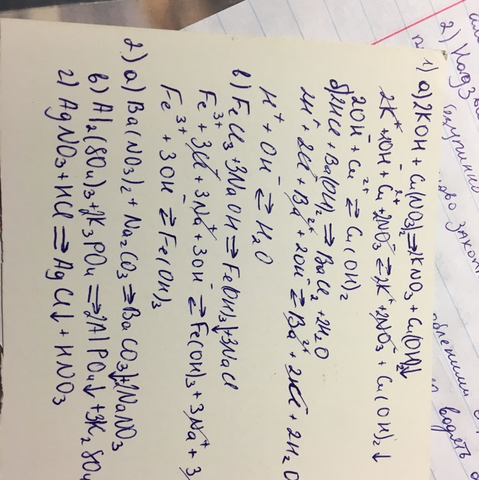 1) а) 2KOH + Cu(NO3)2 ⇒ 2KNO3 + Cu(OH)2↓
2K⁺ + 2OH⁻ + Cu²⁺ + 2NO3⁻ ⇄ 2K⁺ + 2NO3⁻ + Cu(OH)2↓
2OH⁻ + Cu²⁺ ⇄ Cu(OH)2
б) 2HCl + Ba(OH)2 ⇒ BaCl2 + 2H2O
2H⁺ + 2Cl⁻ + Ba²⁺ + 2OH⁻ ⇄ Ba²⁺ + 2Cl⁻ + 2H2O
H⁺ + OH⁻ ⇄ H2O
в) FeCl3 + 3NaOH ⇒ Fe(OH)3↓ + 3NaCl
Fe³⁺ + 3Cl⁻ + 3Na⁺ + 3OH⁻ ⇄ Fe(OH)3 + 3Na⁺ + 3
Fe³⁺ + 3OH⁻ ⇄ Fe(OH)3
2) а) Ba(NO3)2 + Na2CO3 ⇒ BaCO3↓ + 2NaNO3
в) Al2(SO4)3 + 2K3PO4 ⇒ 2AlPO4↓ + 3K2SO4
г) AgNO3 + HCl ⇒ AgCl↓ + HNO3
2)